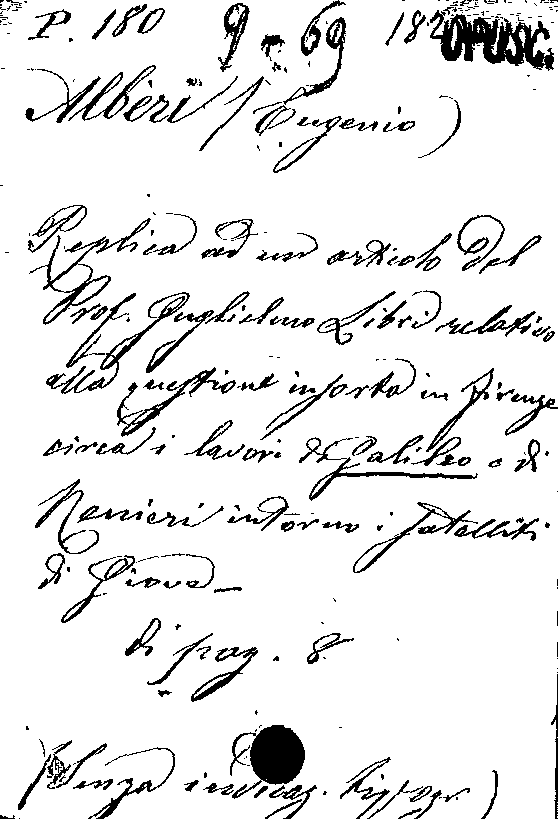 P. 180 9-69 182 OPUSC.
Albèri (Eugenio)
Replica ad un articolo del
Prof. Guglielmo Libri relativo
alla questione insorta in Firenze
circa i lavori di Galileo e di
Renieri intorno i satelliti
di Giove—
di pag. 8
(Senza indicaz. tipogr.)